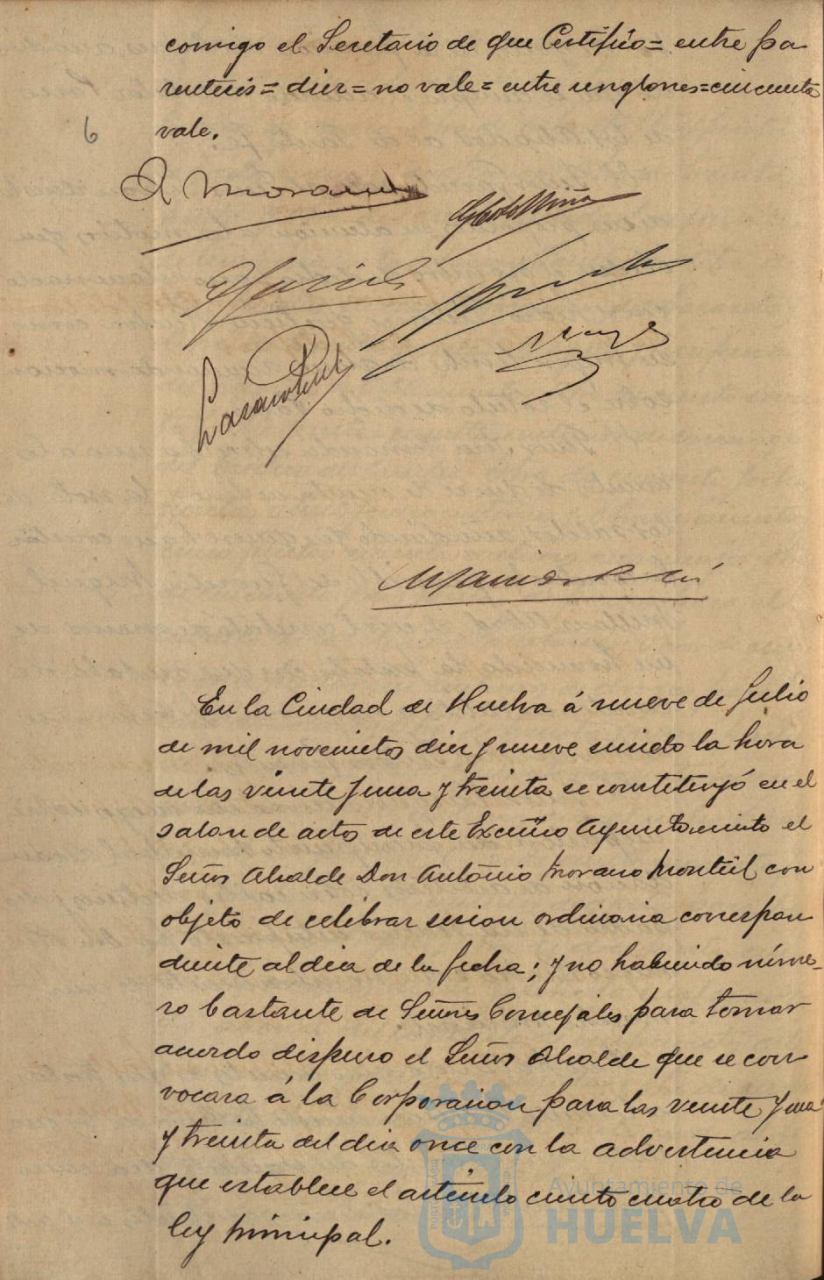 comigo el Secretario de que Certifico = entre pa
rentesis = diez = no vale = entre renglones = cincuenta
vale.
6
A Morano
En la Ciudad de Huelva á nueve de Julio
de mil novecientos diez y nueve siendo la hora
de las veinte y una y treinta se constituyó en el
salon de actos de este Excmo Ayuntamiento el
Señor Alcalde Don Antonio Morano Montiel con
objeto de celebrar sesion ordinaria correspon
diente al dia de la fecha; y no habiendo núme-
ro bastante de Señores Concejales para tomar
acuerdo dispuso el Señor Alcalde que se con
vocara á la Corporacion para las veinte y una
y treinta del dia once con la advertencia
que establece el artículo ciento cuatro de la
ley municipal.
Ayuntamiento de
HUELVA